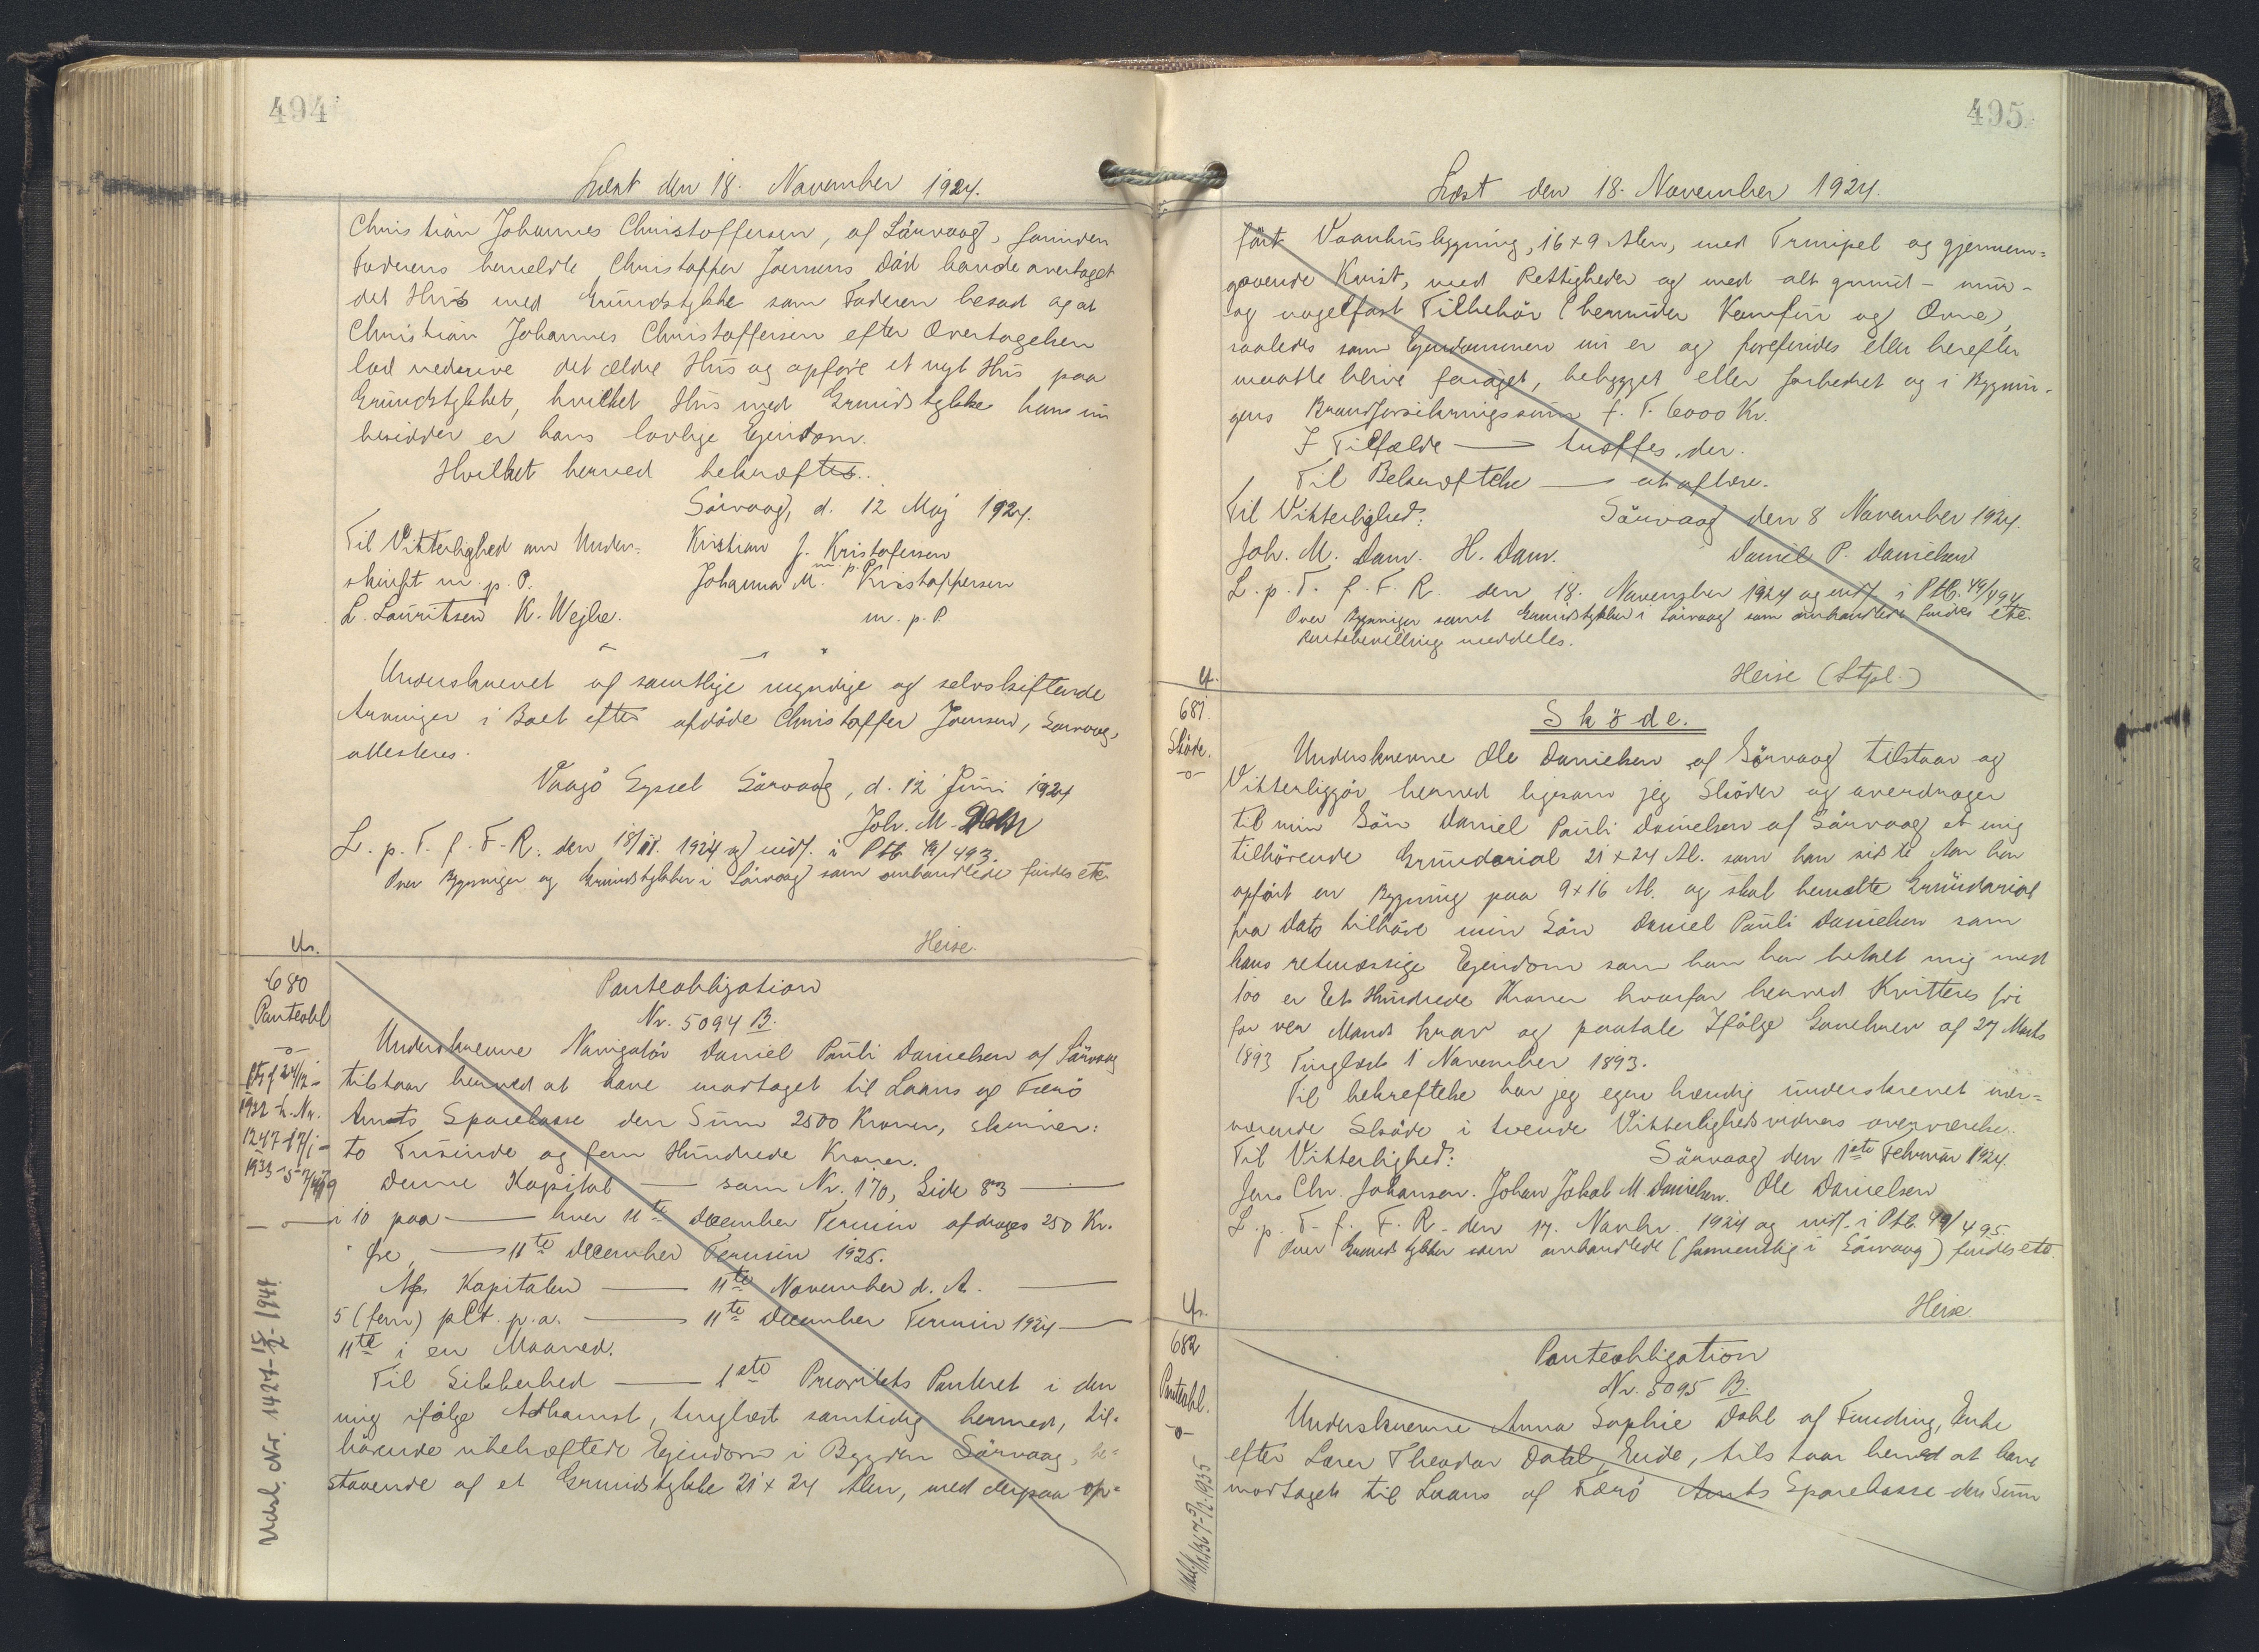 494
Læst den 18. November 1924.
Christian Johannes Christoffersen, af Sørvaag, forinden
Faderens bemeldte Christoffer Joensens Død havde overtaget
det Hus med Grundstykke som Faderen besad og at
Christian Johannes Christoffersen efter Overtagelsen
lod nedrive det ældre Hus og opføre et nyt Hus paa
Grundstykket, hvilket Hus med Grundstykke han nu
besidder er hans lovlige Ejendom.
Hvilket herved bekræftes.
Sørvaag, d. 12 Maj 1924.
Til Vitterlighed om Under= Kristian J. Kristofersen
skrift m. p. P. m. p. P.
Johanna M. Kristoffersen
L. Lauritsen K. Wejhe. m. p. P.
Underskrevet af samtlige myndige og selvskiftende
Arvinger i Boet efter afdøde Christoffer Joensen, Sørvaag,
attesteres.
Vaagø Syssel Sørvaag, d. 12 Juni 1924
Joh. M. Dam
L. p. T. f. F. R. den 18/11. 1924 og indf. i Ptb. 49/493.
Over Bygninger og Grundstykker i Sørvaag som omhandlede findes etc.
Heise.
Nr.
680
Panteobl
Panteobligation
Nr. 5094 B.
Underskrevne Navigatør Daniel Pauli Danielsen af Sørvaag
tilstaar herved at have modtaget til Laans af Færø
Amts Sparekasse den Sum 2500 Kroner, skriver:
to Tusinde og fem Hundrede Kroner.
Denne Kapital — som Nr. 170, Side 83 —
i 10 paa — hver 11te December Termin afdrages 250 Kr.
— 11te December Termin 1925.
Af Kapitalen — 11te November d. A. —
5 (fem) pCt. p. a. — 11te December Termin 1924 —
11te i en Maaned.
Til Sikkerhed — 1ste Prioritets Panteret i den
mig ifølge Adkomst, tinglæst samtidig hermed, til=
hørende ubehæftede Ejendom i Bygden Sørvaag, be=
staaende af et Grundstykke 21 x 24 Alen, med derpaa op=
1932
1247-17/1-
1933
Udsl. Nr. 1427-15/2-1941
495
Læst den 18. November 1924.
ført Vaanhusbygning, 16 x 9 Alen, med Trempel og gjennem=
gaaende Kvist, med Rettigheder og med alt grund- mur-
og nagelfast Tilbehør (herunder Komfur og Ovne),
saaledes som Ejendommen nu er og forefindes eller herefter
maatte blive forøget, bebygget eller forbedret og i Bygnin-
gens Brandforsikringssum f. T. 6000 Kr.
I Tilfælde — træffes der.
Til Bekræftelse — at aflæse.
Til Vitterlighed: Sørvaag den 8 November 1924.
Joh. M. Dam. H. Dam. Daniel P. Danielsen
L. p. T. f. F. R. den 18. November 1924 og indf. i Ptb. 49/494
Over Bygninger samt Grundstykker i Sørvaag som omhandlede findes etc.
Rentebevilling meddeles.
Heise (Stpl.)
Nr.
681.
Skøde.
Skøde.
Underskrevne Ole Danielsen af Sørvaag tilstaar og
Vitterliggør herved ligesom jeg Skøder og overdrager
til min Søn Daniel Pauli Danielsen af Sørvaag et mig
tilhørende Grundarial 21 x 24 Al. som han sidste Aar har
opført en Bygning paa 9 x 16 Al. og skal bemeldte Grundarial
fra Dato tilhøre min Søn Daniel Pauli Danielsen som
hans retmæssige Ejendom som han har betalt mig med
100 er Et Hundrede Kroner hvorfor herved Kvitteres fri
for ver Mands krav og paatale Ifølge Gavebrev af 27 Marts
1893 Tinglæst 1 November 1893.
Til bekreftelse har jeg egen hændig underskrevet nær=
værende Skøde i tvende Vitterlighedsvidners overværelse.
Til Vitterlighed: Sørvaag den 1ste Februar 1924.
Jens Chr. Johansen. Johan Jakob M Danielsen. Ole Danielsen
L. p. T. f. F. R. den 17. Novbr. 1924 og indf. i Ptb. 49/495.
Over Grundstykker som omhandlede (formentlig i Sørvaag) findes etc.
Heise.
Nr.
682
Panteobl.
Panteobligation
Nr. 5095 B.
Underskrevne Anna Sophie Dahl af Funding, Enke
efter Lærer Theodor Dahl, Eide, tilstaar herved at have
modtaget til Laans af Færø Amts Sparekasse den Sum